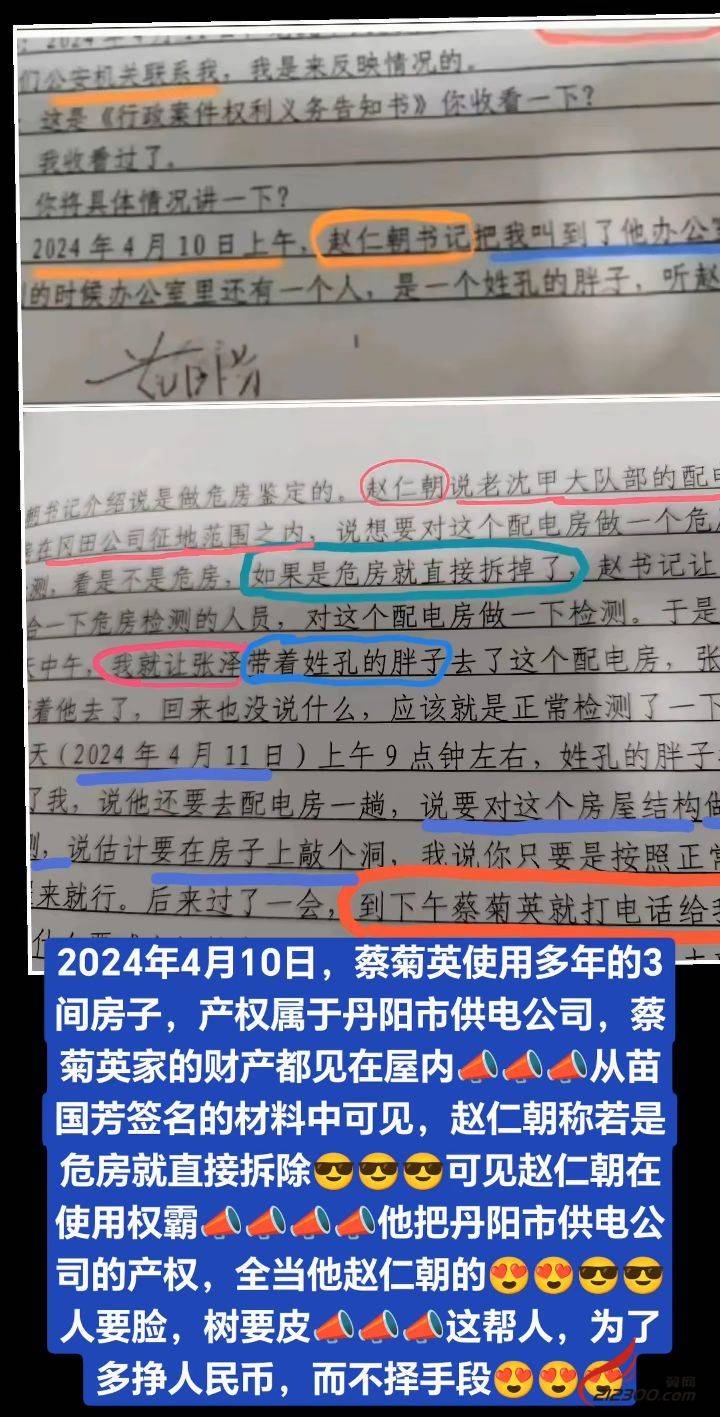 2024年4月11日
们公安机关联系我，我是来反映情况的。
这是《行政案件权利义务告知书》你收看一下？
我收看过了。
你将具体情况讲一下？
2024年4月10日上午，赵仁朝书记把我叫到了他办公室
的时候办公室里还有一个人，是一个姓孔的胖子，听赵
朝书记介绍说是做危房鉴定的。赵仁朝说老沈甲大队部的配电
在冈田公司征地范围之内，说想要对这个配电房做一个危
测，看是不是危房，如果是危房就直接拆掉了，赵书记让
合一下危房检测的人员，对这个配电房做一下检测。于是
天中午，我就让张泽带着姓孔的胖子去了这个配电房，张
着他去了，回来也没说什么，应该就是正常检测了一下
天（2024年4月11日）上午9点钟左右，姓孔的胖子
了我，说他还要去配电房一趟，说要对这个房屋结构做
测，说估计要在房子上敲个洞，我说你只要是按照正常
来就行。后来过了一会，到下午蔡菊英就打电话给我
2024年4月10日，蔡菊英使用多年的3
间房子，产权属于丹阳市供电公司，蔡
菊英家的财产都见在屋内📣📣📣从苗
国芳签名的材料中可见，赵仁朝称若是
危房就直接拆除😎😎😎可见赵仁朝在
使用权霸📣📣📣📣他把丹阳市供电公
司的产权，全当他赵仁朝的😍😍😎😎
人要脸，树要皮📣📣📣这帮人，为了
多挣人民币，而不择手段😍😍😍
翼网
212300.com